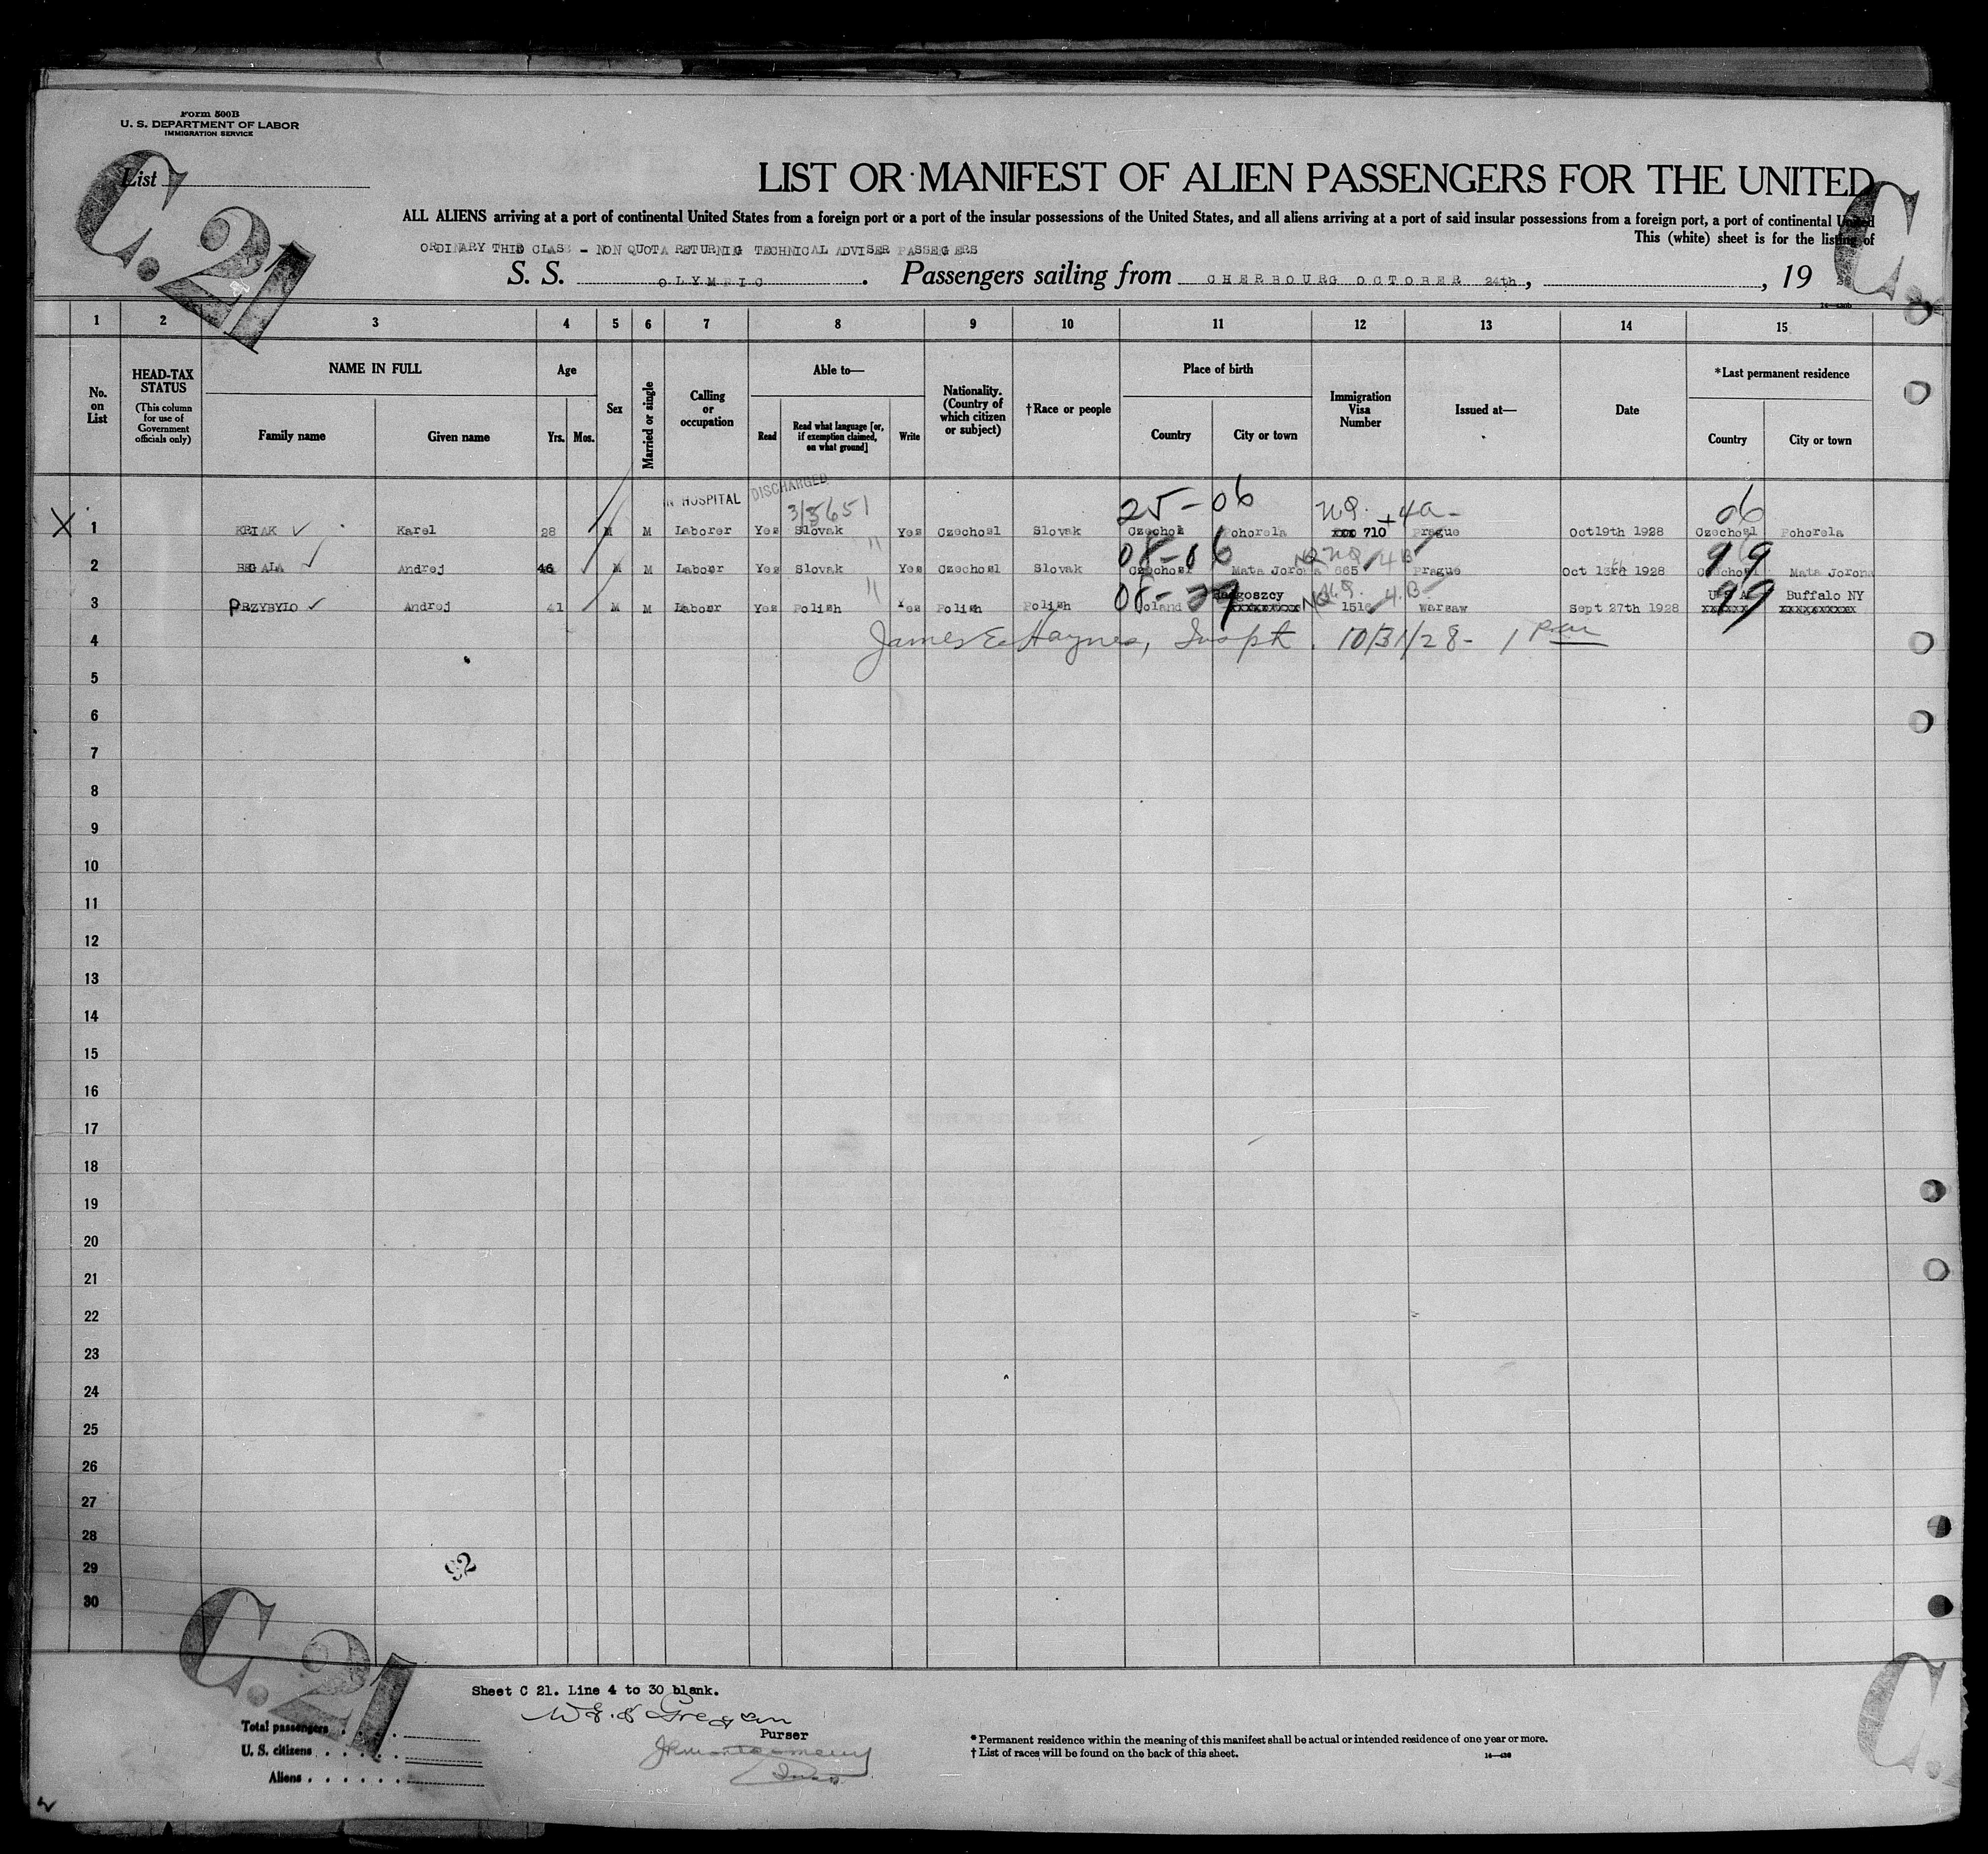 Form 500B
U. S. DEPARTMENT OF LABOR
IMMIGRATION SERVICE
List
C. 21
C.
LIST OR MANIFEST OF ALIEN PASSENGERS FOR THE UNITED
ALL ALIENS arriving at a port of continental United States from a foreign port or a port of the insular possessions of the United States, and all aliens arriving at a port of said insular possessions from a foreign port, a port of continental United
This (white) sheet is for the listing of
ORDINARY THID CLASS - NON QUOTA RETURNIG TECHNICAL ADVISER PASSEGERS
S. S. OLYMPIC. Passengers sailing from CHERBOURG OCTOBER 24th, , 19
1 2 3 4 5 6 7 8 9 10 11 12 13 14 15
No. on List
HEAD-TAX STATUS
(This column for use of Government officials only)
NAME IN FULL
Family name
Given name
Age
Yrs.
Mos.
Sex
Married or single
Calling or occupation
Able to—
Read
Read what language [or, if exemption claimed, on what ground]
Write
Nationality. (Country of which citizen or subject)
†Race or people
Place of birth
Country
City or town
Immigration Visa Number
Issued at—
Date
*Last permanent residence
Country
City or town
IN HOSPITAL DISCHARGED
25-06 NQ. +4a- 06
X 1 KRIAK ✓ Karel 28 M M Laborer Yes Slovak Yes Czechosl Slovak Czechosl Pohorela xxx 710 Prague Oct19th 1928 Czechosl Pohorela
08-06 NQ 4B 99
2 BEGALA ✓ Andrej 46 M M Laboer Yes Slovak " Yes Czechosl Slovak Czechosl Mata Jorona 665 Prague Oct 13th 1928 Czechosl Mata Jorona
08-29 NQ 4.B. 99
Radgoszcy U S A Buffalo NY
3 PRZYBYLO ✓ Andrej 41 M M Laboer Yes Polish " Yes Polish Polish Poland xxxxxxxxx 1516 Warsaw Sept 27th 1928 xxxxxx xxxxxxxxxx
James E. Haynes, Inspt. 10/31/28- 1 PM
4
5
6
7
8
9
10
11
12
13
14
15
16
17
18
19
20
21
22
23
24
25
26
27
28
29
30
92
C. 21
C.
Sheet C 21. Line 4 to 30 blank.
Purser
Total passengers
U. S. citizens
Aliens
* Permanent residence within the meaning of this manifest shall be actual or intended residence of one year or more.
† List of races will be found on the back of this sheet.